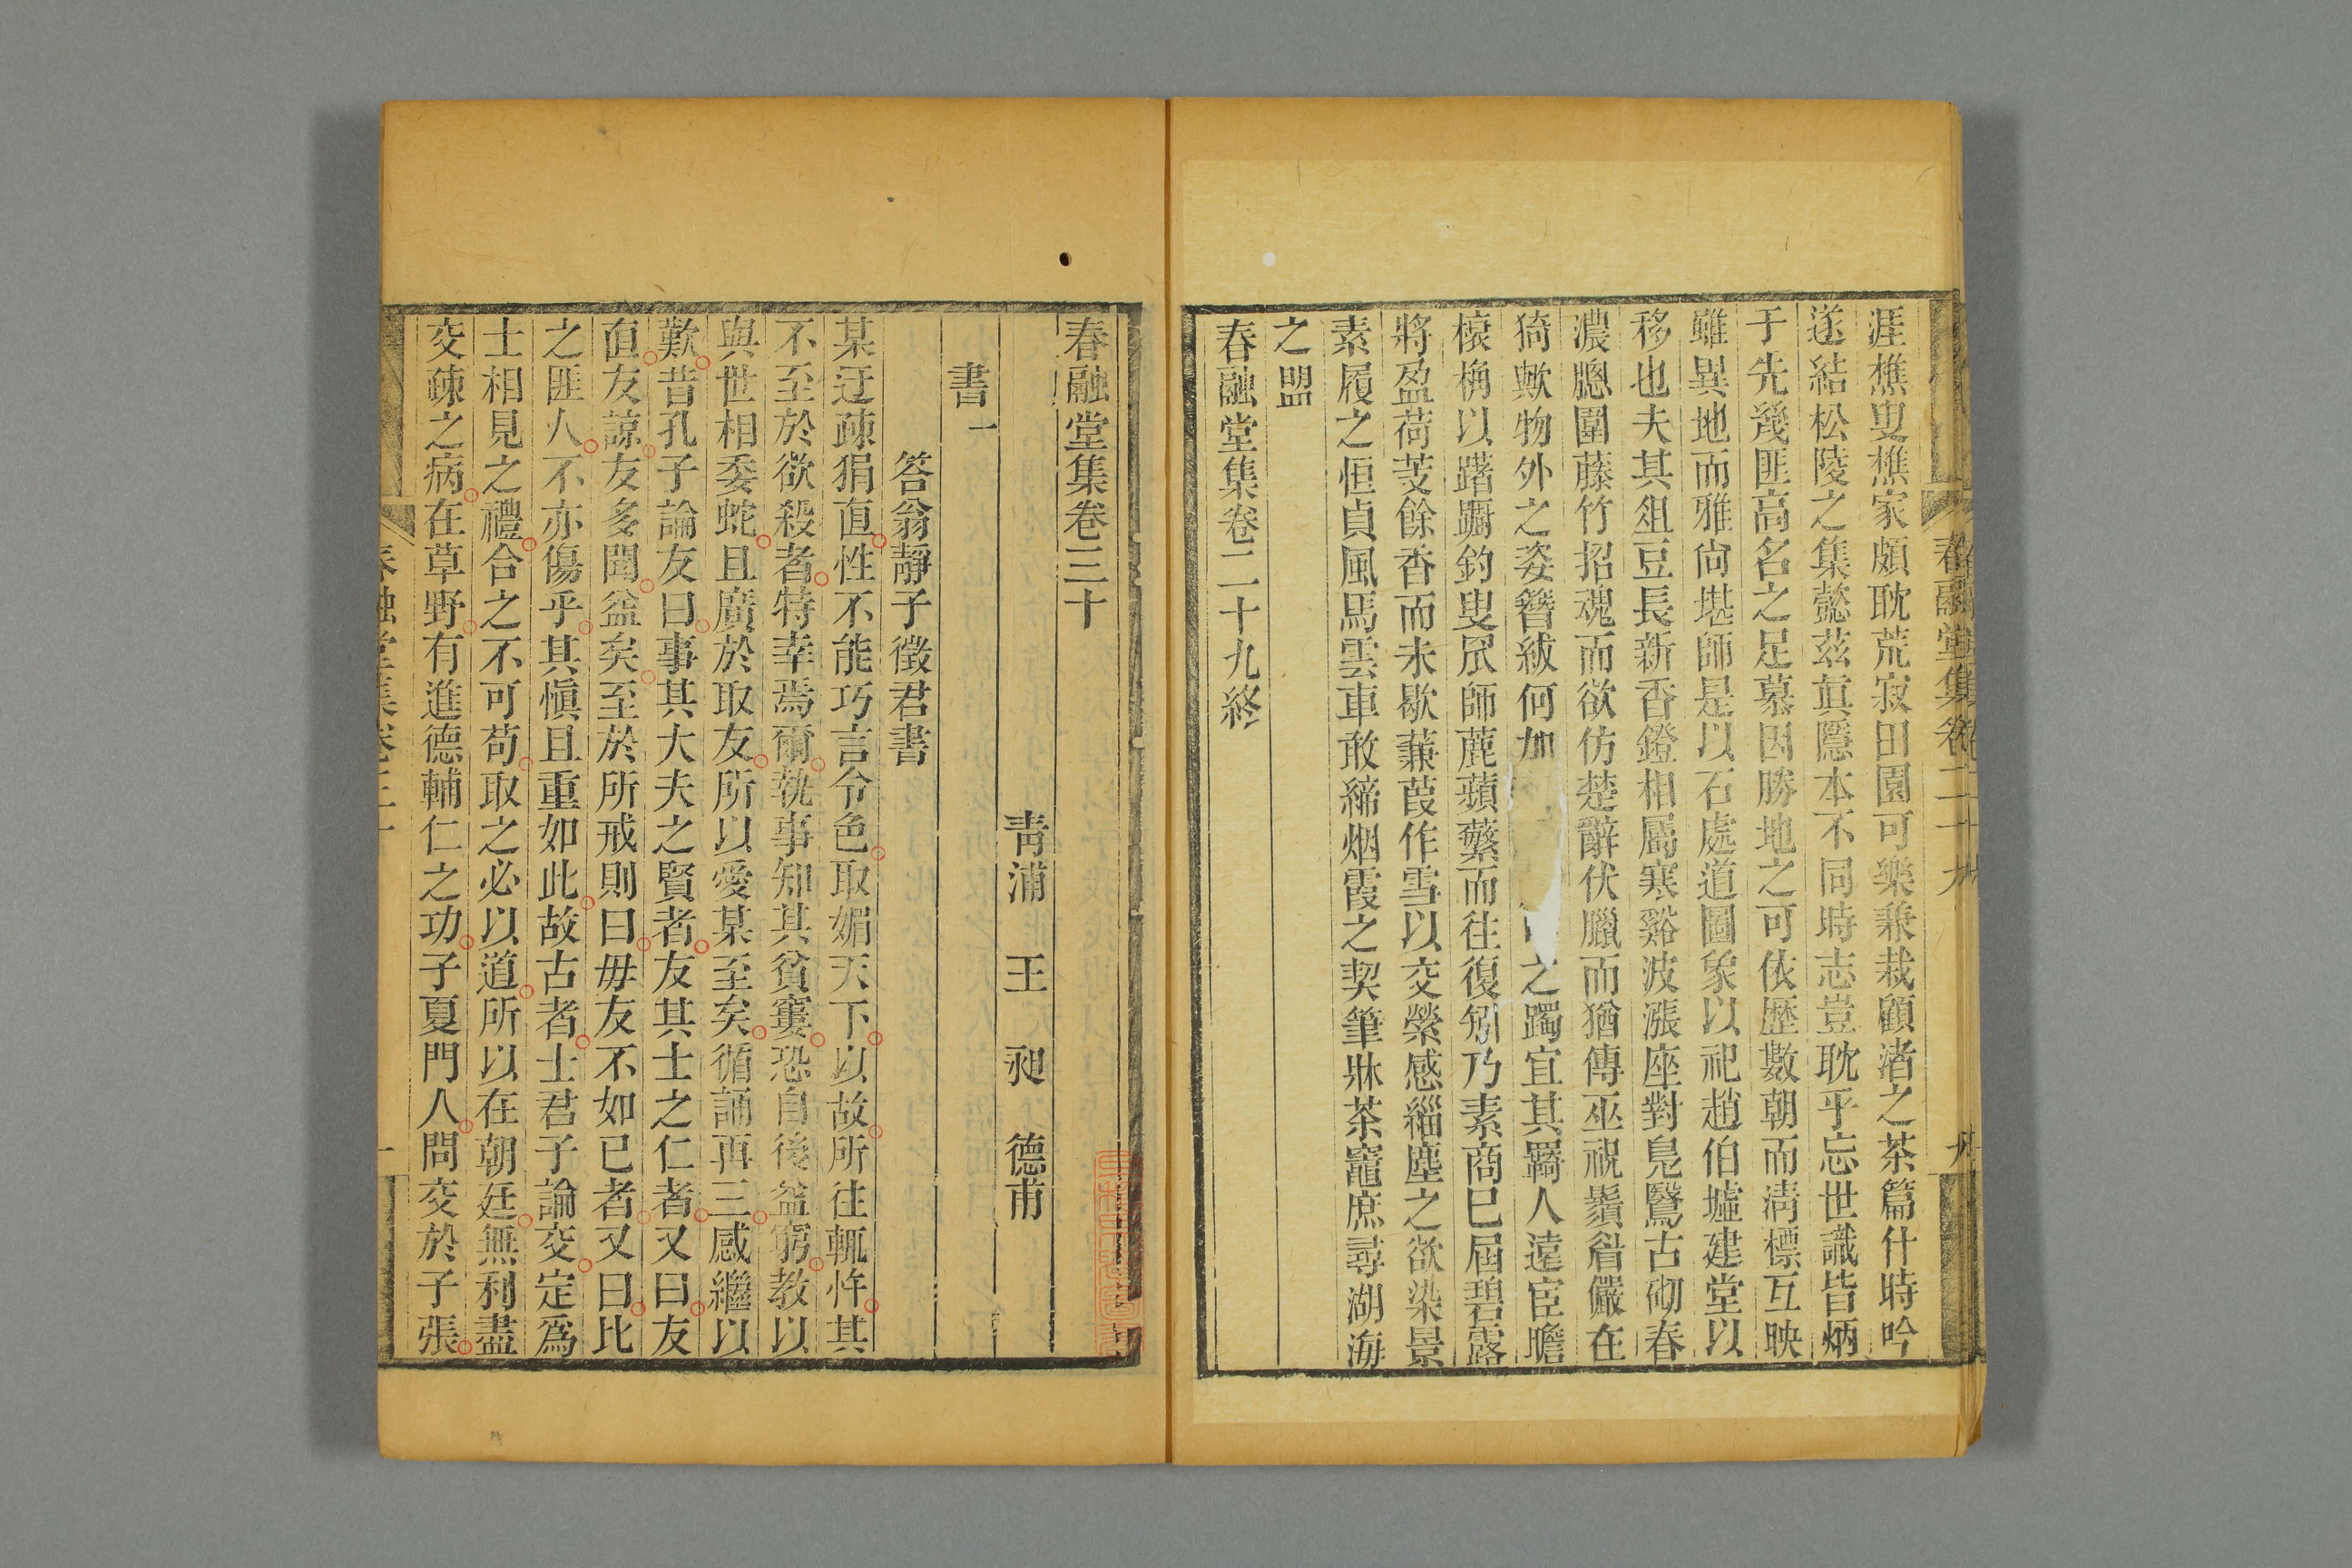 涯樵叟樵家頗耽荒寂田園可樂兼栽顧渚之茶篇什時吟
遂結松陵之集懿茲眞隱本不同時志豈耽乎忘世識皆炳
于先幾匪高名之足慕因勝地之可依歷數朝而淸標互映
雖異地而雅尙堪師是以石處道圖象以祀趙伯墟建堂以
移也夫其俎豆長新香鐙相屬寒谿波漲座對鳧鷖古砌春
濃牕圍藤竹招魂而欲仿楚辭伏臘而猶傳巫祝鬚眉儼在
猗歟物外之姿簪紱何加之躅宜其羇人遠宦瞻
榱桷以躊躕釣叟罛師薦蘋蘩而往復矧乃素商巳屆碧露
將盈荷芰餘香而未歇蒹葭作雪以交縈感緇塵之欲染景
素履之恒貞風馬雲車敢締烟霞之契筆牀茶竈庶尋湖海
之盟
春融堂集卷二十九終
春融堂集卷二十九 九
春融堂集卷三十
靑浦 王 昶 德甫
書一
答翁靜子徵君書
某迂疎狷直性不能巧言令色取媚天下以故所往輒忤其
不至於欲殺者特幸焉爾執事知其貧窶恐自後益窮教以
與世相委蛇且廣於取友所以愛某至矣循誦再三感繼以
歎昔孔子論友曰事其大夫之賢者友其士之仁者又曰友
直友諒友多聞益矣至於所戒則曰毋友不如已者又曰比
之匪人不亦傷乎其愼且重如此故古者士君子論交定爲
士相見之禮合之不可苟取之必以道所以在朝廷無利盡
交疎之病在草野有進德輔仁之功子夏門人問交於子張
春融堂集卷三十 一